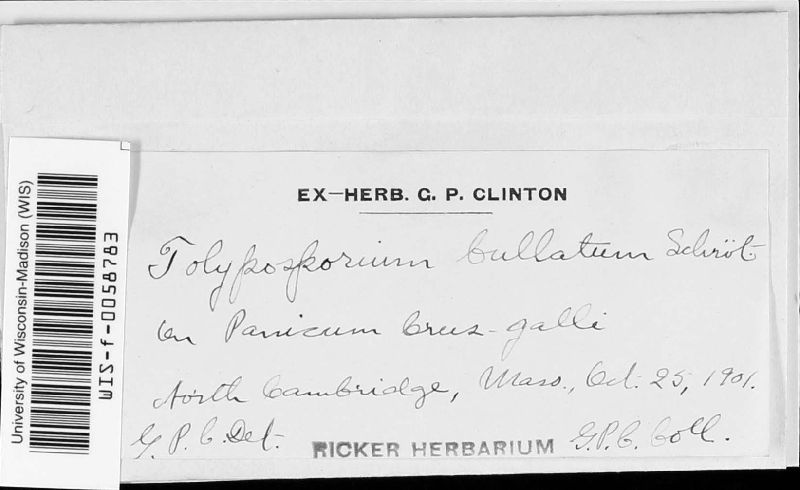 EX-HERB. G. P. CLINTON
Tolyposporium bullatum Schröt
on Panicum Crus-galli
North Cambridge, Mass., Oct. 25, 1901.
G. P. C. Det.
RICKER HERBARIUM
G.P.C. Coll.
University of Wisconsin-Madison (WIS)
WIS-f-0058783